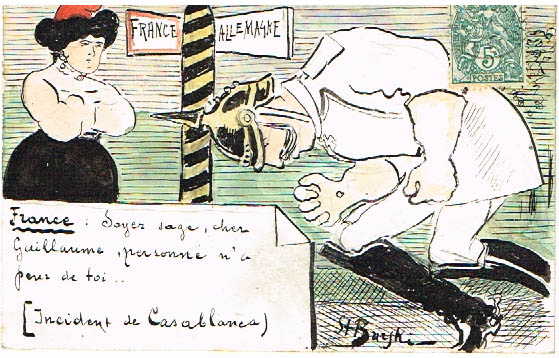 FRANCE
ALLEMAGNE
5
POSTES
France : Soyez sage, cher
Guillaume, personne n'a
peur de toi..
[Incident de Casablanca)